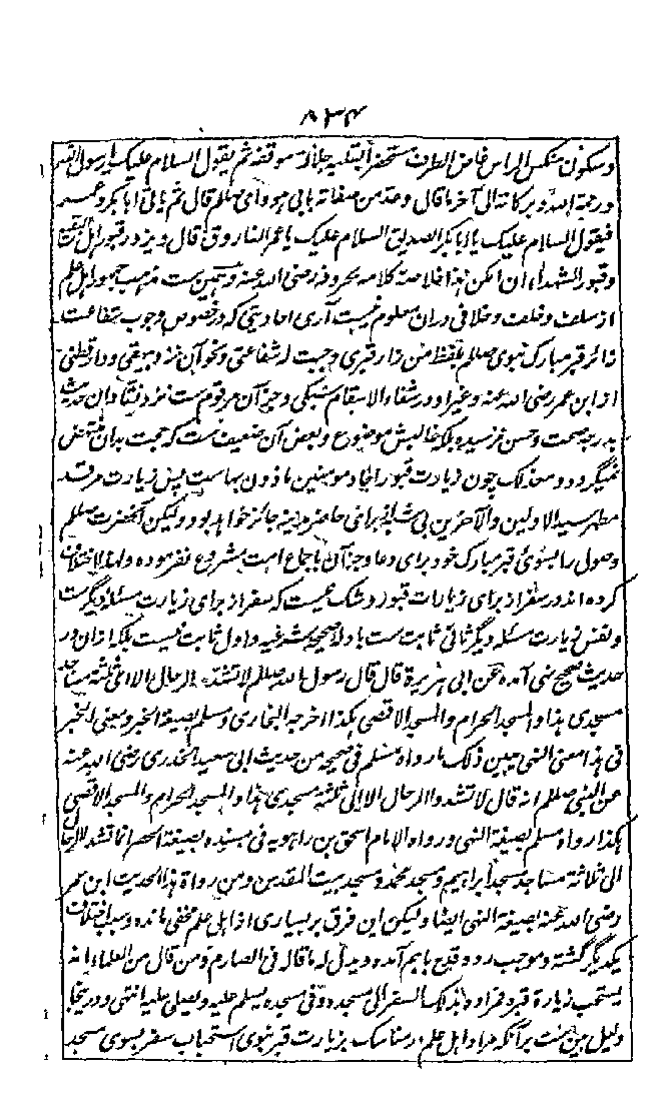 ۸۳۴
وسکون منکس الراس غاض الطرف مستحضرا بقلبه جلالة موقفه ثم یقول السلام علیک یا رسول الله
ورحمة الله وبرکاته الی آخر ما قال وعد من صفاته بابی هو وامی صلعم قال ثم یاتی ابا بکر وعمر
فیقول السلام علیک یا ابا بکر الصدیق السلام علیک یا عمر الفاروق قال ویزور قبور اهل البقیع
وقبور الشهداء ان امکن هذا خلاصة کلامه بحروفه رضی الله عنه وهمین ست مذهب جمهور اهل علم
از سلف وخلف وخلافی دران معلوم نیست آری احادیثی که در خصوص وجوب شفاعت
زائر قبر مبارک نبوی صلعم بلفظ من زار قبری وجبت له شفاعتی ونحو آن نزد بیهقی ودارقطنی
از ابن عمر رضی الله عنه وغیر او در شفاء الاسقام سبکی وجز آن مرقوم ست نزد نقادان حدیث
بدرجه صحت وحسن نرسیده بلکه غالبش موضوع وبعض آن ضعیف ست که حجت بدان منتهض
نمیگردد ومعذلک چون زیارت قبور آحاد مومنین ماذون بهاست پس زیارت مرقد
مطهر سید الاولین والآخرین بی شبهه برای حاضر مدینه جائز خواهد بود ولیکن آنحضرت صلعم
وصول را بسوی قبر مبارک خود برای دعا وجز آن باجماع امت مشروع نفرموده واما اختلاف
کرده اند در سفر از برای زیارات قبور وشک نیست که سفر از برای زیارت مسئله دیگرست
ونفس زیارت مسئله دیگر ثانی ثابت ست بادله صحیحه شرعیه واول ثابت نیست بلکه ازان در
حدیث صحیح نهی آمده عن ابی هریرة قال قال رسول الله صلعم لا تشد الرحال الا الی ثلثة مساجد
مسجدی هذا والمسجد الحرام والمسجد الاقصی هکذا اخرجه البخاری ومسلم بصیغة الخبر ومعنی الخبر
فی هذا معنی النهی یبین ذلک ما رواه مسلم فی صحیحه من حدیث ابی سعید الخدری رضی الله عنه
عن النبی صلعم انه قال لا تشدوا الرحال الا الی ثلثة مسجدی هذا والمسجد الحرام والمسجد الاقصی
هکذا رواه مسلم بصیغة النهی ورواه الامام اسحق بن راهویه فی مسنده بصیغة الحصر انما تشد الرحال
الی ثلاثة مساجد مسجد ابراهیم ومسجد محمد ومسجد بیت المقدس ومن رواة هذا الحدیث ابن عمر
رضی الله عنه بصیغة النهی ایضا ولیکن این فرق بر بسیاری از اهل علم مخفی مانده وسبب اختلاف
یکدیگر گشته وموجب رد وقدح باهم آمده ویدل له ما قاله فی الصارم ومن قال من العلماء انه
یستحب زیارة قبره فمراده بذلک السفر الی مسجده وفی مسجده یسلم علیه ویصلی علیه انتهی ودرینجا
دلیل بین ست برآنکه مراد اهل علم در مناسک بزیارت قبر نبوی استحباب سفر بسوی مسجد